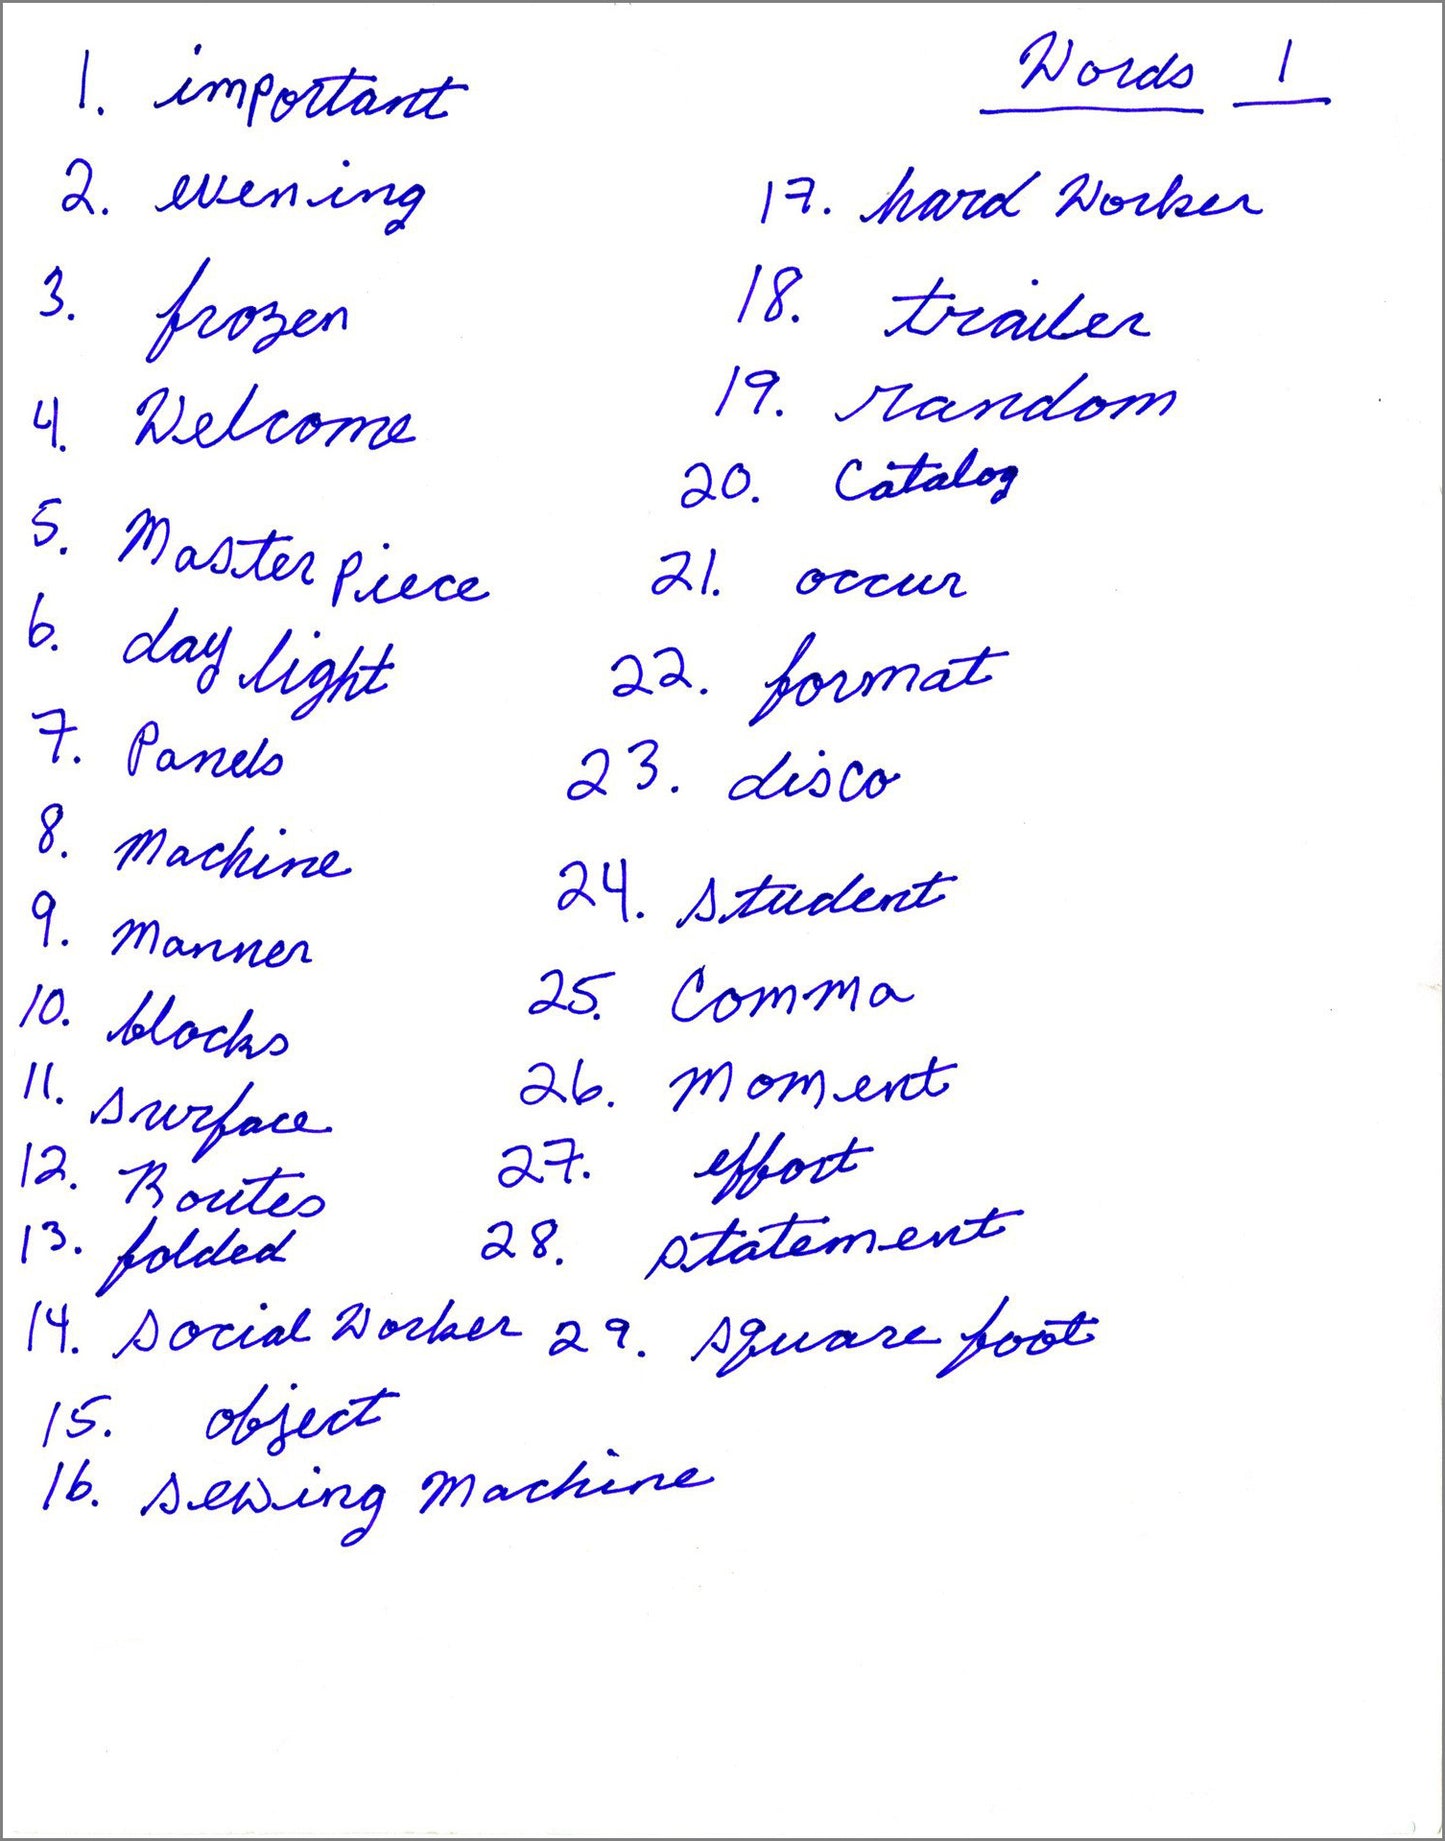 Words 1
1. important
2. evening
3. frozen
4. Welcome
5. Master piece
6. day light
7. Panels
8. Machine
9. Manner
10. blocks
11. surface
12. Routes
13. folded
14. social Worker
15. object
16. sewing Machine
17. hard Worker
18. trailer
19. random
20. Catalog
21. occur
22. format
23. disco
24. student
25. Comma
26. Moment
27. effort
28. statement
29. square foot